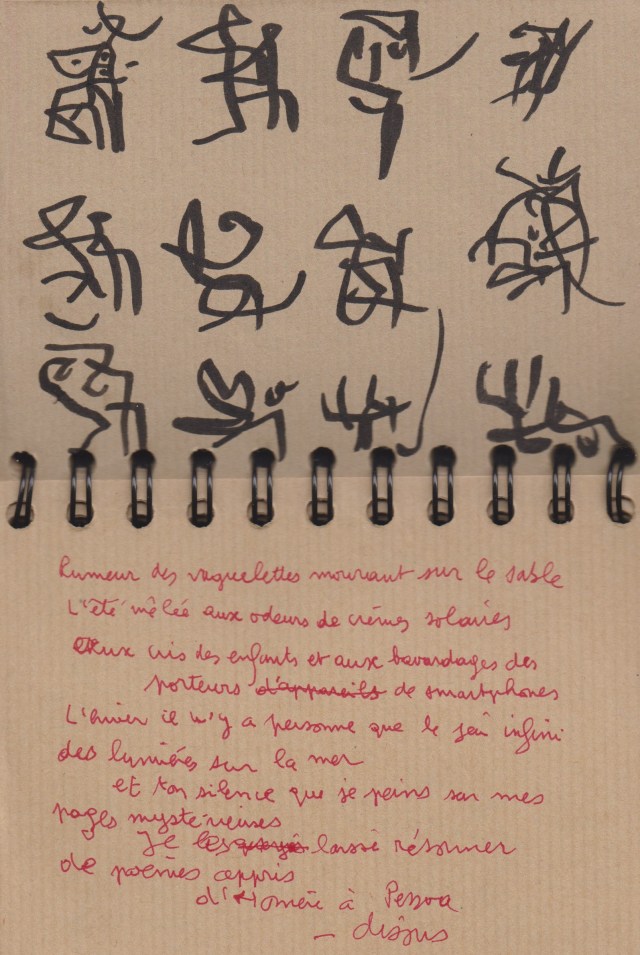 Rumeur des vaguelettes mourant sur le sable
L'été mêlée aux odeurs de crèmes solaires
Aux cris des enfants et aux bavardages des
porteurs d'appareils de smartphones
L'hiver il n'y a personne que le jeu infini
des lumières sur la mer
et ton silence que je peins sur mes
pages mystérieuses
Je les laisse résonner
de poèmes appris
d'Homère à Pessoa